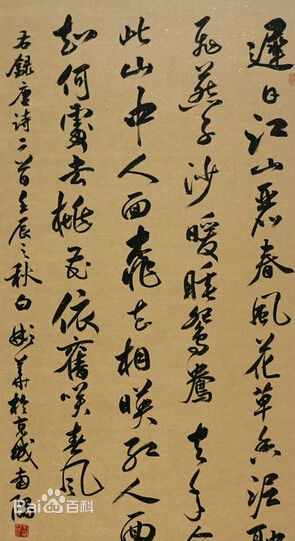 遲日江山麗春風花草香泥融
飛燕子沙暖睡鴛鴦去年今
此門中人面桃花相映紅人面
知何處去桃花依舊笑春風
右錄唐詩二首壬辰之秋白彬華於京城南隅
Bai百科